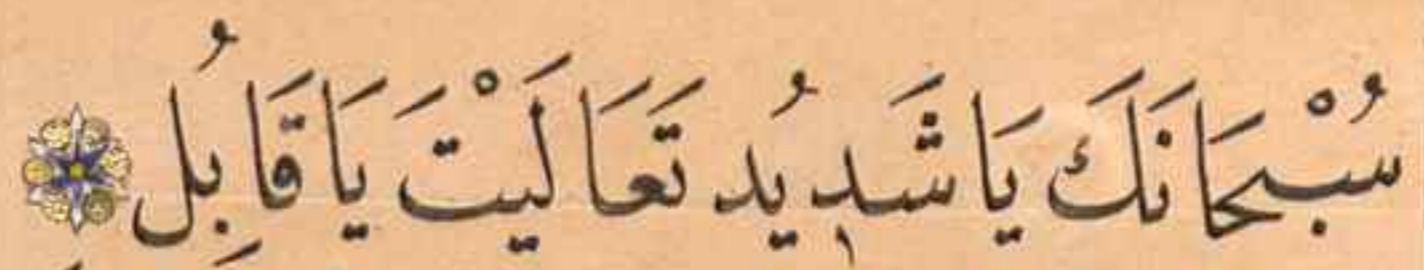 سُبْحَانَكَ يَا شَدِيُد تَعَالَيْتَ يَا قَابِلُ